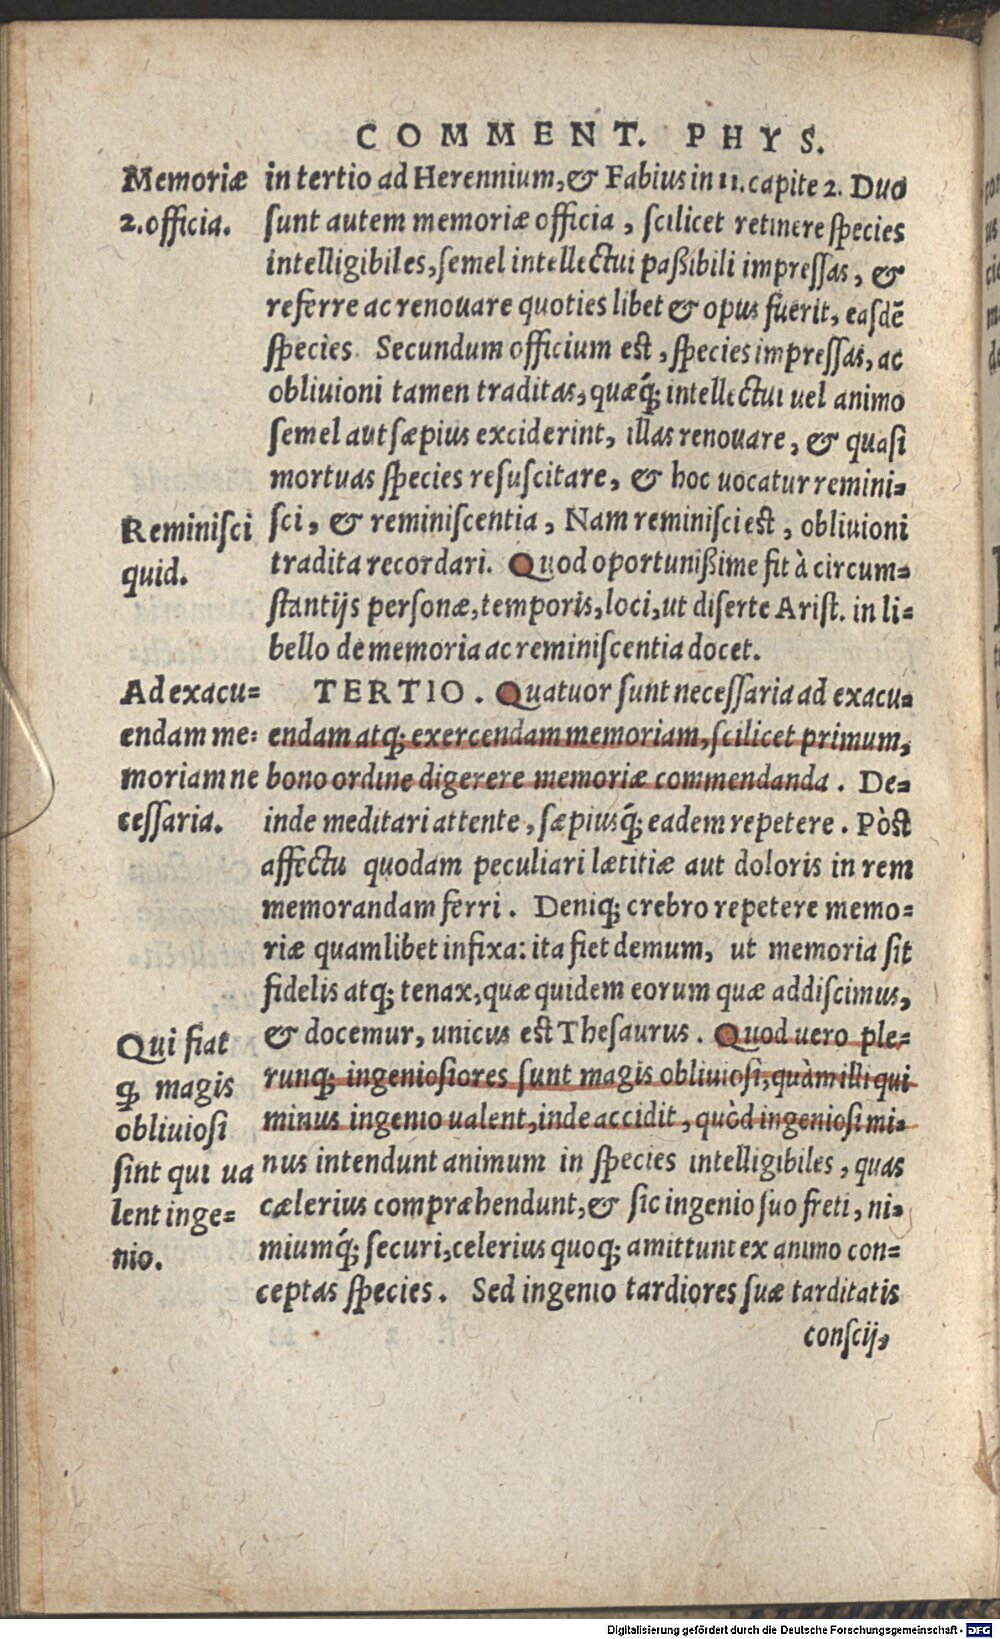 COMMENT. PHYS.
Memoriæ
2. officia.
in tertio ad Herennium, & Fabius in 11. capite 2. Duo
sunt autem memoriæ officia, scilicet retinere species
intelligibiles, semel intellectui paßibili impressas, &
referre ac renouare quoties libet & opus fuerit, easdē
species. Secundum officium est, species impressas, ac
obliuioni tamen traditas, quæq́; intellectui uel animo
semel aut sæpius exciderint, illas renouare, & quasi
mortuas species resuscitare, & hoc uocatur remini=
Reminisci
quid.
sci, & reminiscentia, Nam reminisci est, obliuioni
tradita recordari. Quod oportunißime fit à circum=
stantijs personæ, temporis, loci, ut diserte Arist. in li=
bello de memoria ac reminiscentia docet.
Ad exacu=
endam me=
moriam ne
cessaria.
TERTIO. Quatuor sunt necessaria ad exacu=
endam atq; exercendam memoriam, scilicet primum,
bono ordine digerere memoriæ commendanda. De=
inde meditari attente, sæpiusq́; eadem repetere. Pòst
affectu quodam peculiari lætitiæ aut doloris in rem
memorandam ferri. Deniq; crebro repetere memo=
riæ quamlibet infixa: ita fiet demum, ut memoria sit
fidelis atq; tenax, quæ quidem eorum quæ addiscimus,
& docemur, unicus est Thesaurus. Quod uero ple=
Qui fiat
q; magis
obliuiosi
sint qui ua
lent inge=
nio.
runq; ingeniosiores sunt magis obliuiosi, quàm illi qui
minus ingenio ualent, inde accidit, quòd ingeniosi mi=
nus intendunt animum in species intelligibiles, quas
cælerius compræhendunt, & sic ingenio suo freti, ni=
miumq́; securi, celerius quoq; amittunt ex animo con=
ceptas species. Sed ingenio tardiores suæ tarditatis
conscij,
Digitalisierung gefördert durch die Deutsche Forschungsgemeinschaft - DFG